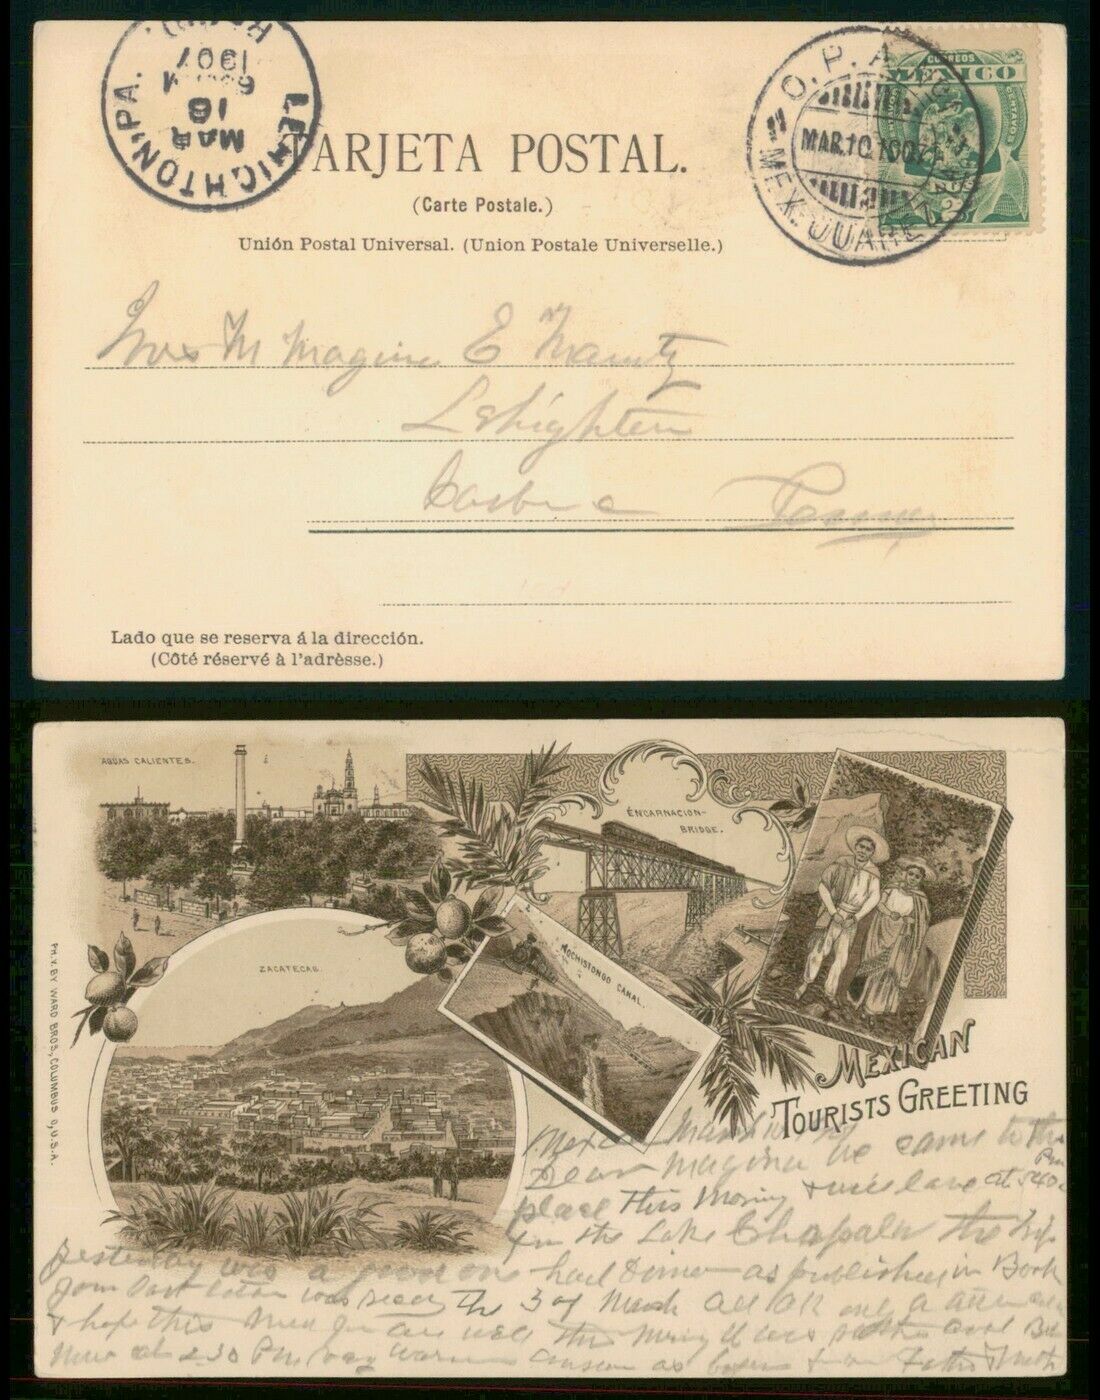 LEHIGHTON, PA.
MAR
18
6
1907
REC'D.
O.P.A.
MAR. 10. 1907
MEX. JUAREZ
CORREOS
MEXICO
TARJETA POSTAL.
(Carte Postale.)
Unión Postal Universal. (Union Postale Universelle.)
M E Mantz
Lehighton
Carbon Penna
Lado que se reserva á la dirección.
(Côté réservé à l'adrèsse.)
AGUAS CALIENTES.
ENCARNACION-
BRIDGE.
MOCHISTONGO CANAL.
ZACATECAS.
PH.X. BY WARD BROS, COLUMBUS O, U.S.A.
MEXICAN
TOURISTS GREETING
March 10
Dear we came to this
place this Morning & will leave at 540 Pm
for the Lake Chapala the trip
Yesterday was a good one had Dinner as published in Book
Your last letter was the 3 of March all OK only a
& hope this you are well this Morning it was cool But
Now at 230 Pm very warm as